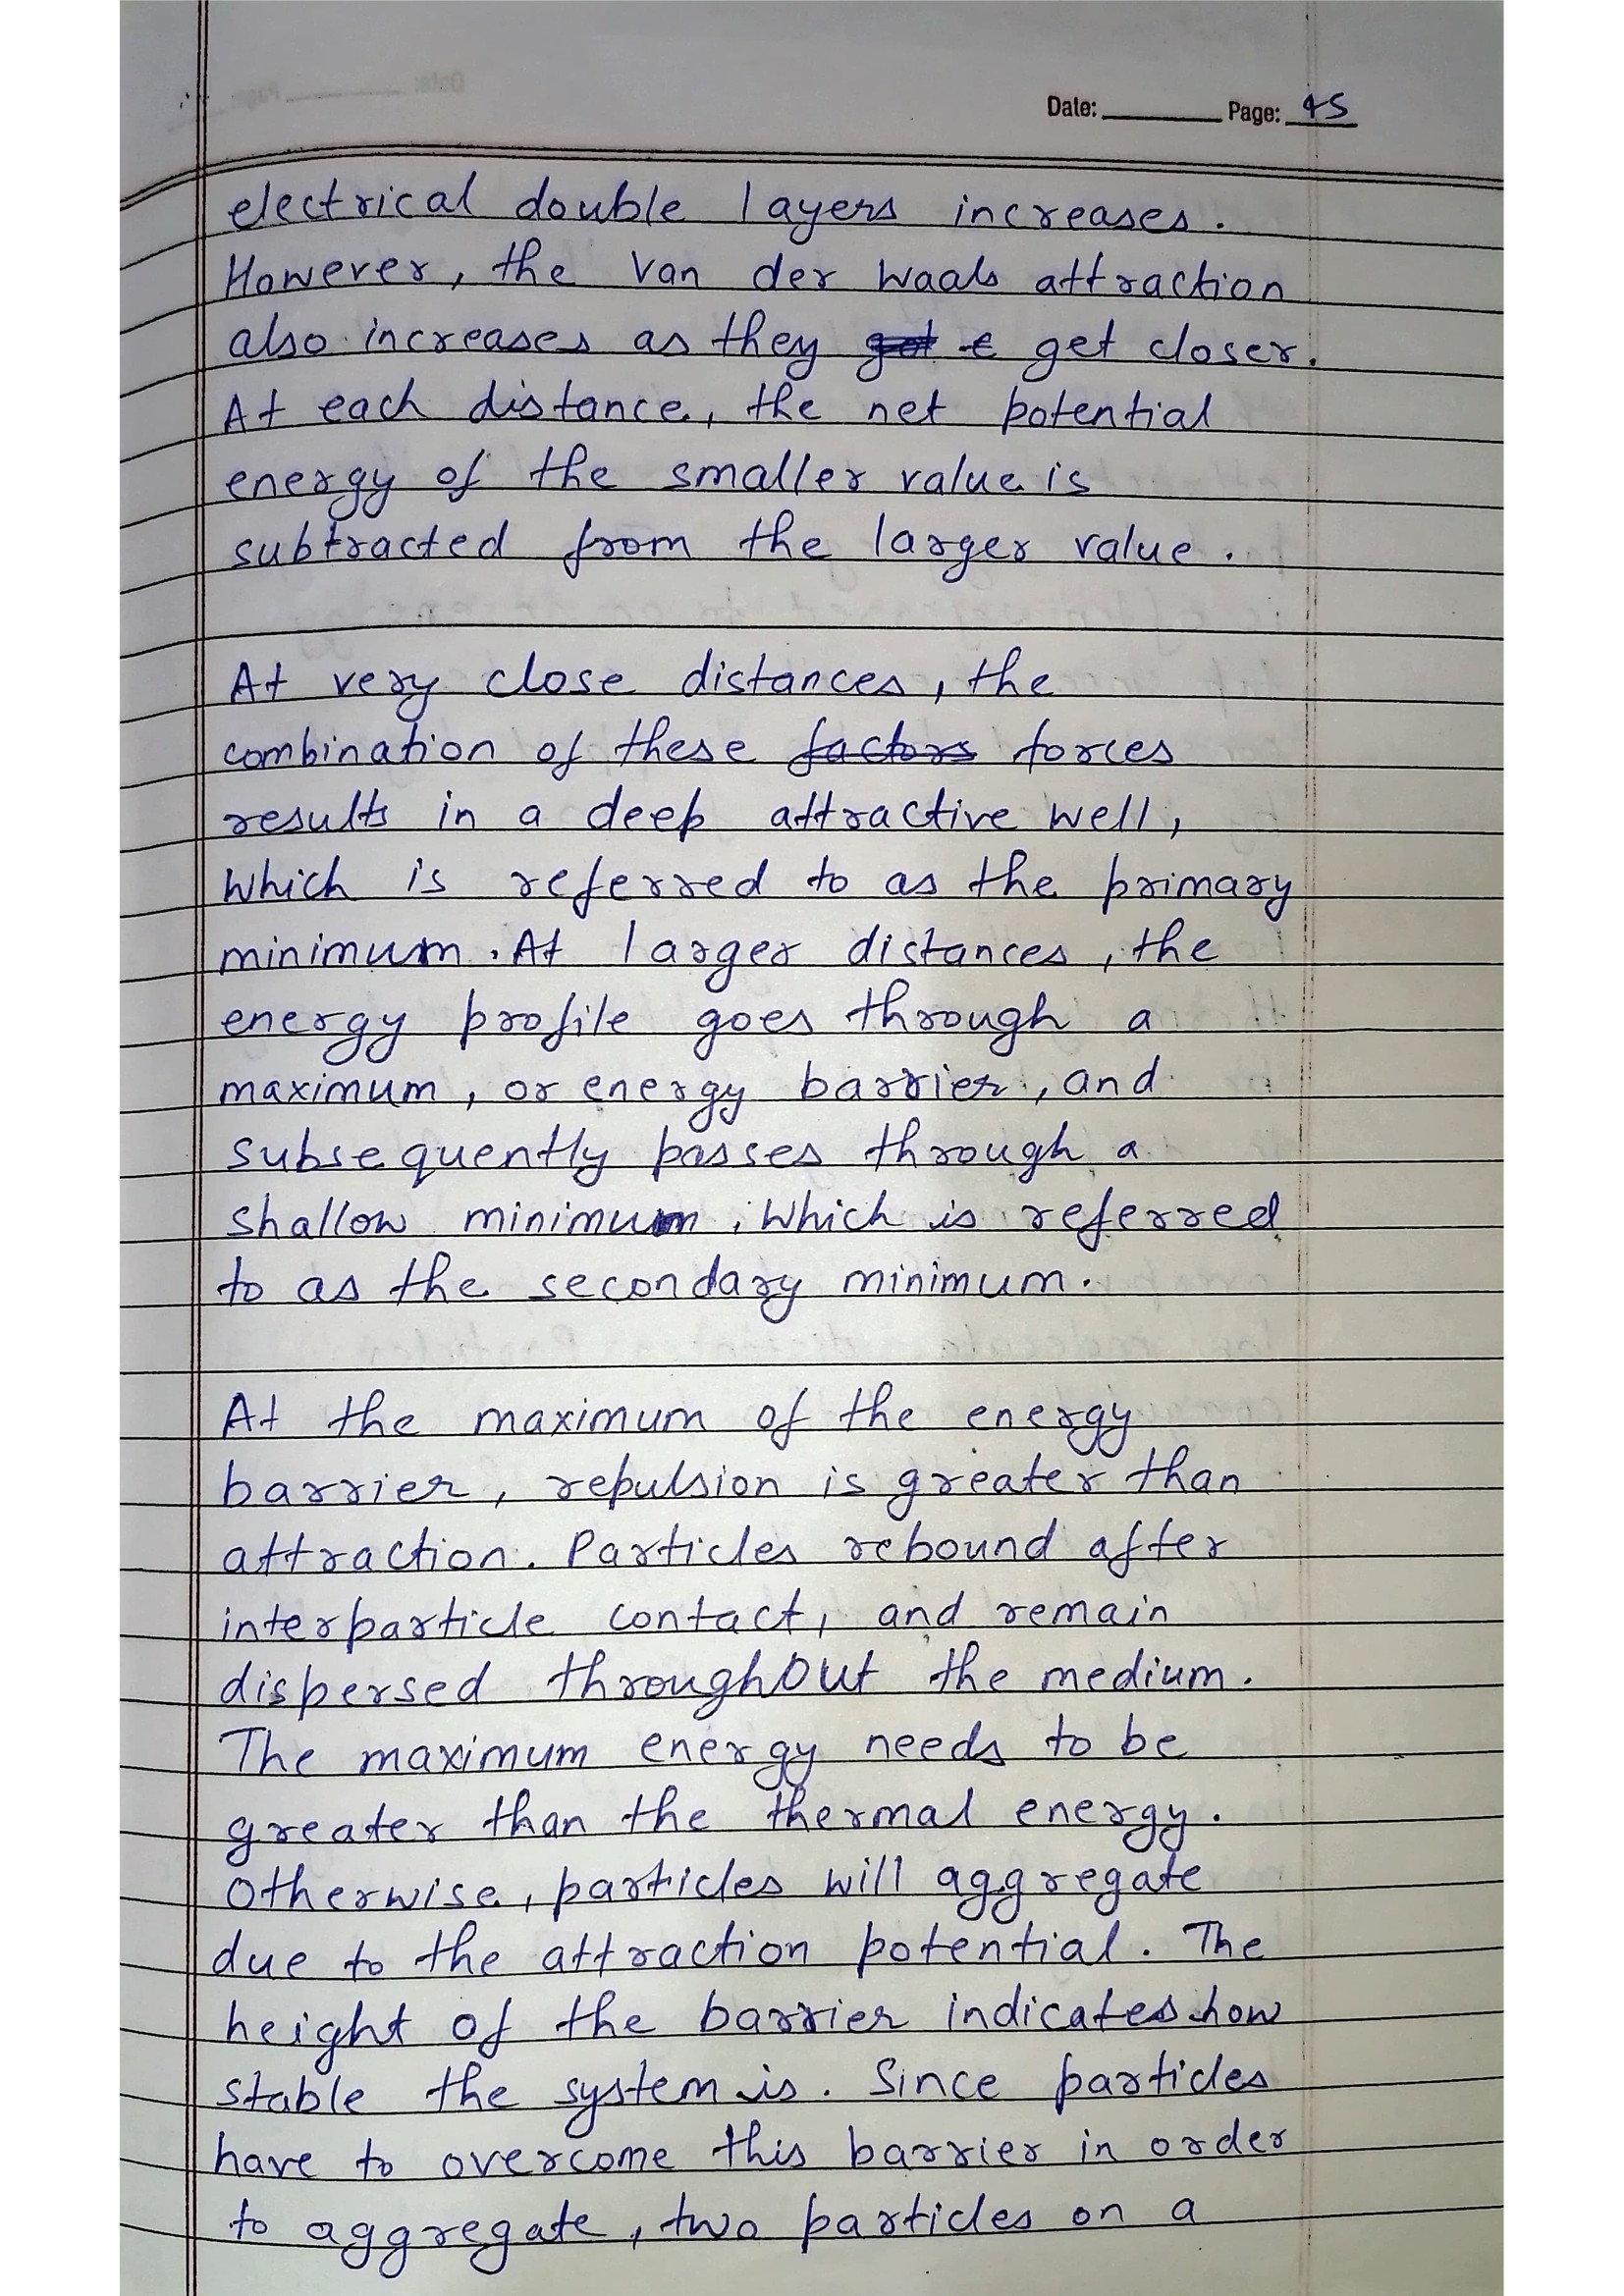 Date: ________ Page: 45
electrical double layers increases.
However, the Van der Waals attraction
also increases as they get closer.
At each distance, the net potential
energy of the smaller value is
subtracted from the larger value.
At very close distances, the
combination of these factors forces
results in a deep attractive well,
which is referred to as the primary
minimum. At larger distances, the
energy profile goes through a
maximum, or energy barrier, and
subsequently passes through a
shallow minimum, which is referred
to as the secondary minimum.
At the maximum of the energy
barrier, repulsion is greater than
attraction. Particles rebound after
interparticle contact, and remain
dispersed throughout the medium.
The maximum energy needs to be
greater than the thermal energy.
Otherwise, particles will aggregate
due to the attraction potential. The
height of the barrier indicates how
stable the system is. Since particles
have to overcome this barrier in order
to aggregate, two particles on a